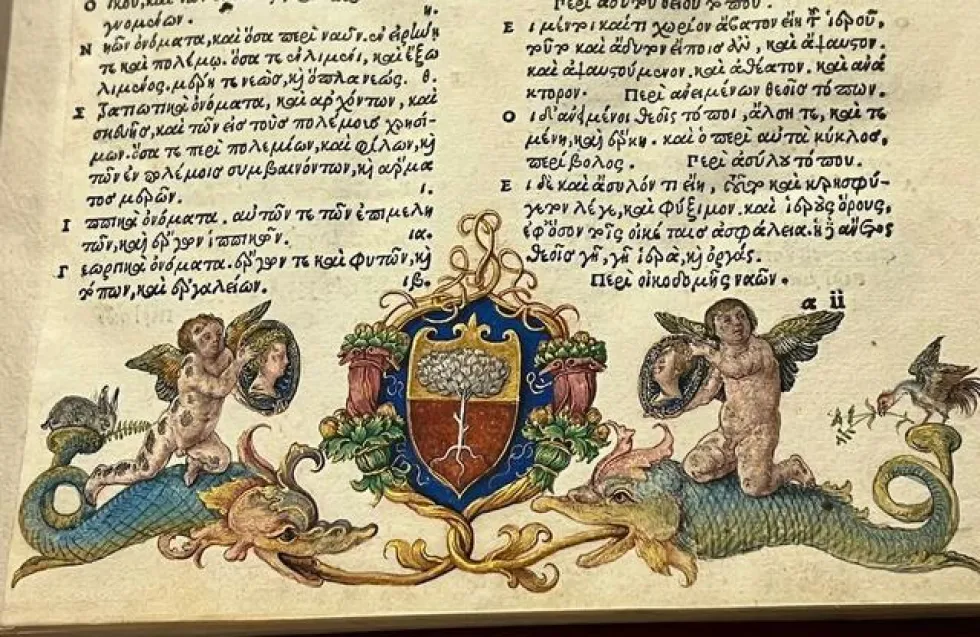 γνομένων. η.
Νηῶν ὀνόματα, καὶ ὅσα περὶ ναῦν. ἐν εἰρήνῃ
τε καὶ πολέμῳ. ὅσα τε ἐν λιμένι, καὶ ἔξω
λιμένος. μέρη τε νεώς, καὶ ὅπλα νεώς. θ.
Στρατιωτικὰ ὀνόματα, καὶ ἀρχόντων, καὶ
σκευῆς, καὶ τῶν εἰς τοὺς πολέμους χρησί-
μων. ὅσα τε περὶ πολεμίων, καὶ φίλων, καὶ
τῶν ἐν πολέμοις συμβαινόντων, καὶ ἅρμα
τος μερῶν. ι.
Ιππικὰ ὀνόματα. αὐτῶν τε τῶν ἐπιμελη
τῶν, καὶ ἔργων ἱππικῶν. ια.
Γεωργικὰ ὀνόματα. ἔργων τε καὶ φυτῶν, καὶ
τόπων, καὶ ἐργαλείων. ιβ.
Ει μέντοι καί τι χωρίον ἄβατον εἴη τοῦ ἱεροῦ,
τοῦτο καὶ ἄδυτον εἴποις ἂν, καὶ ἄψαυστον.
καὶ ἀψαυστούμενον. καὶ ἀθέατον. καὶ ἀνά
κτορον. Περὶ ἀνειμένων θεοῖς τόπων.
Οι δ' ἀνειμένοι θεοῖς τόποι, ἄλση τε, καὶ τε
μένη, καὶ ἕρκη. καὶ ὁ περὶ αὐτὰ κύκλος,
περίβολος. Περὶ ἀσύλου τόπου.
Ει δὲ καὶ ἄσυλόν τι εἴη, τοῦτο καὶ κρησφύ-
γετον λέγε, καὶ φύξιμον. καὶ ἱεροὺς ὅρους,
ἐφ' ὅσον τοῖς οἰκέταις ἀσφάλεια. ἡ ἄνετος
θεοῖς γῆ, γῆ ἱερὰ, καὶ ὀργάς.
Περὶ οἰκοδομῆς ναῶν.
a ii